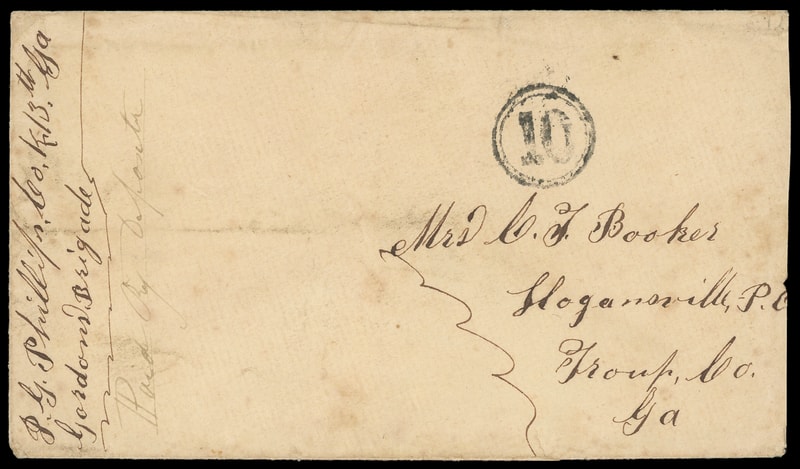 P. G. Phillips, Co, K, 13.th Ga
Gordons Brigade
Paid By
10
Mrs C. F. Booker
Hogansville, P.O
Troup, Co.
Ga